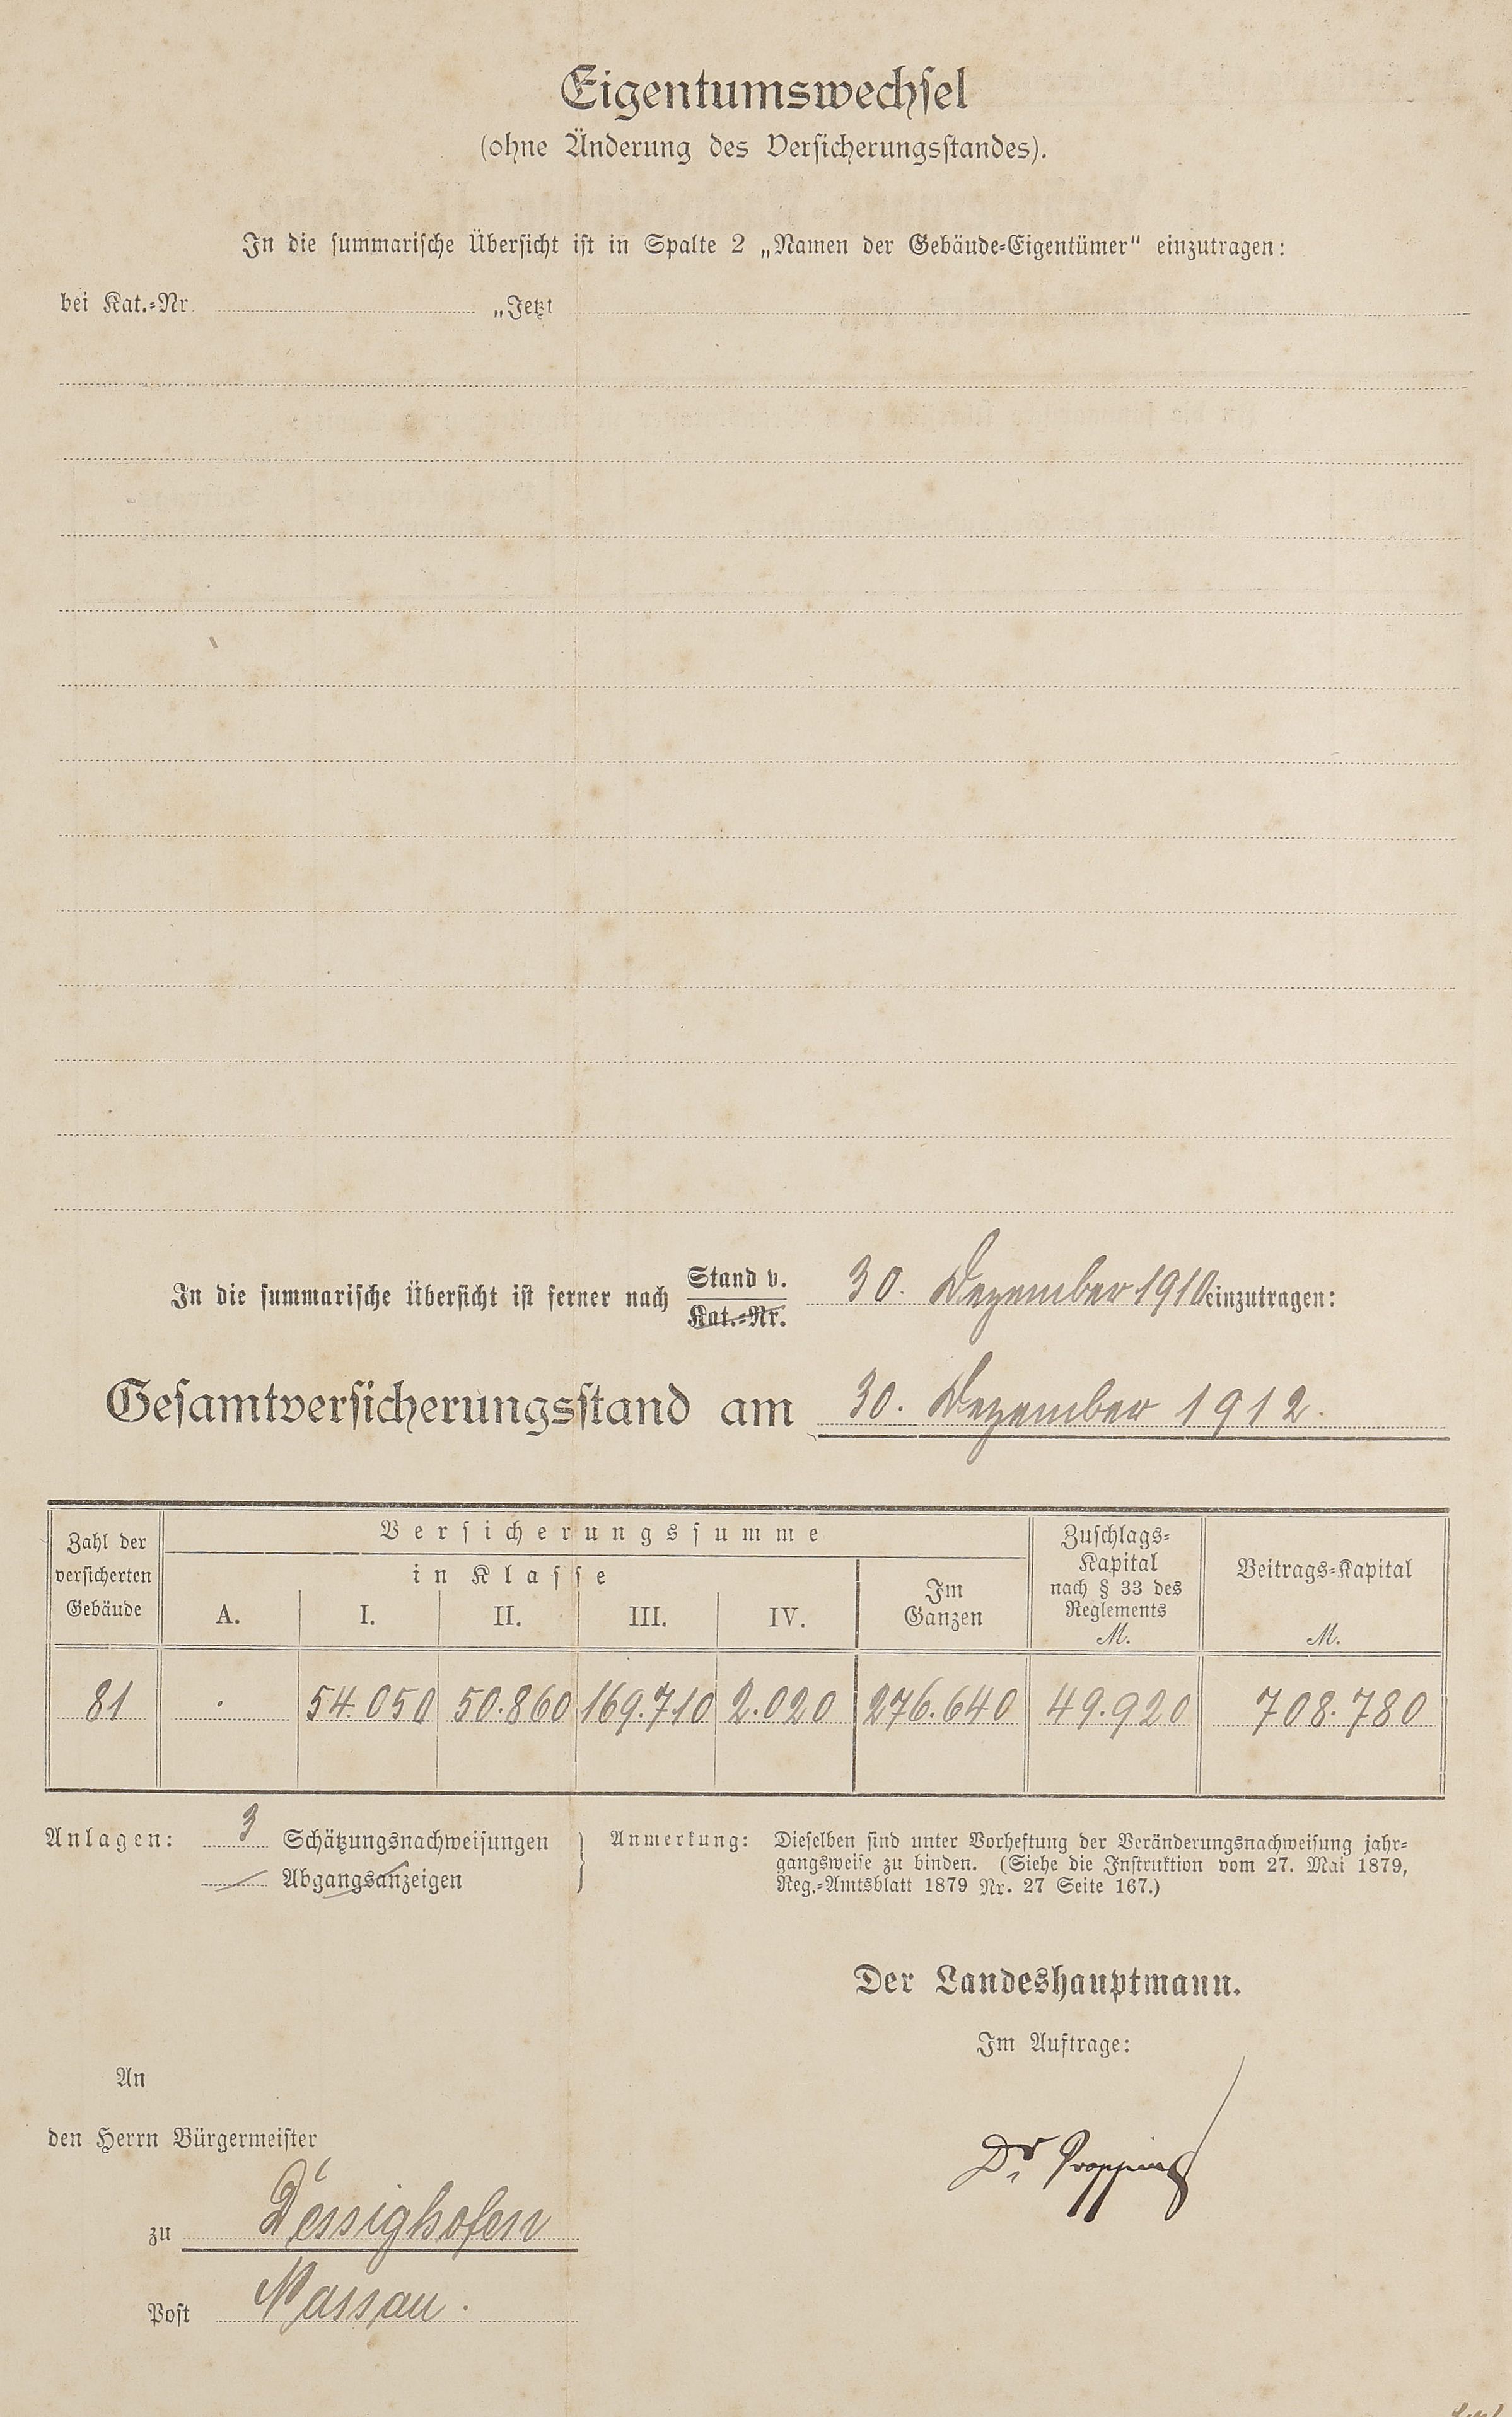 Eigentumswechsel
(ohne Änderung des Versicherungsstandes).
In die summarische Übersicht ist in Spalte 2 „Namen der Gebäude-Eigentümer" einzutragen:
bei Kat.-Nr. „Jetzt
In die summarische Übersicht ist ferner nach Stand v. 30. Dezember 1910 einzutragen:
Kat.-Nr.
Gesamtversicherungsstand am 30. Dezember 1912.
Zahl der versicherten Gebäude
Versicherungssumme
in Klasse
A. I. II. III. IV.
Im Ganzen
Zuschlags-Kapital nach § 33 des Reglements M.
Beitrags-Kapital M.
81 . 54.050 50.860 169.710 2.020 276.640 49.920 708.780
Anlagen: 3 Schätzungsnachweisungen
Abgangsanzeigen
Anmerkung: Dieselben sind unter Vorheftung der Veränderungsnachweisung jahr-
gangsweise zu binden. (Siehe die Instruktion vom 27. Mai 1879,
Reg.-Amtsblatt 1879 Nr. 27 Seite 167.)
Der Landeshauptmann.
Im Auftrage:
Dr.
An
den Herrn Bürgermeister
zu Dessighofen
Post Nassau.